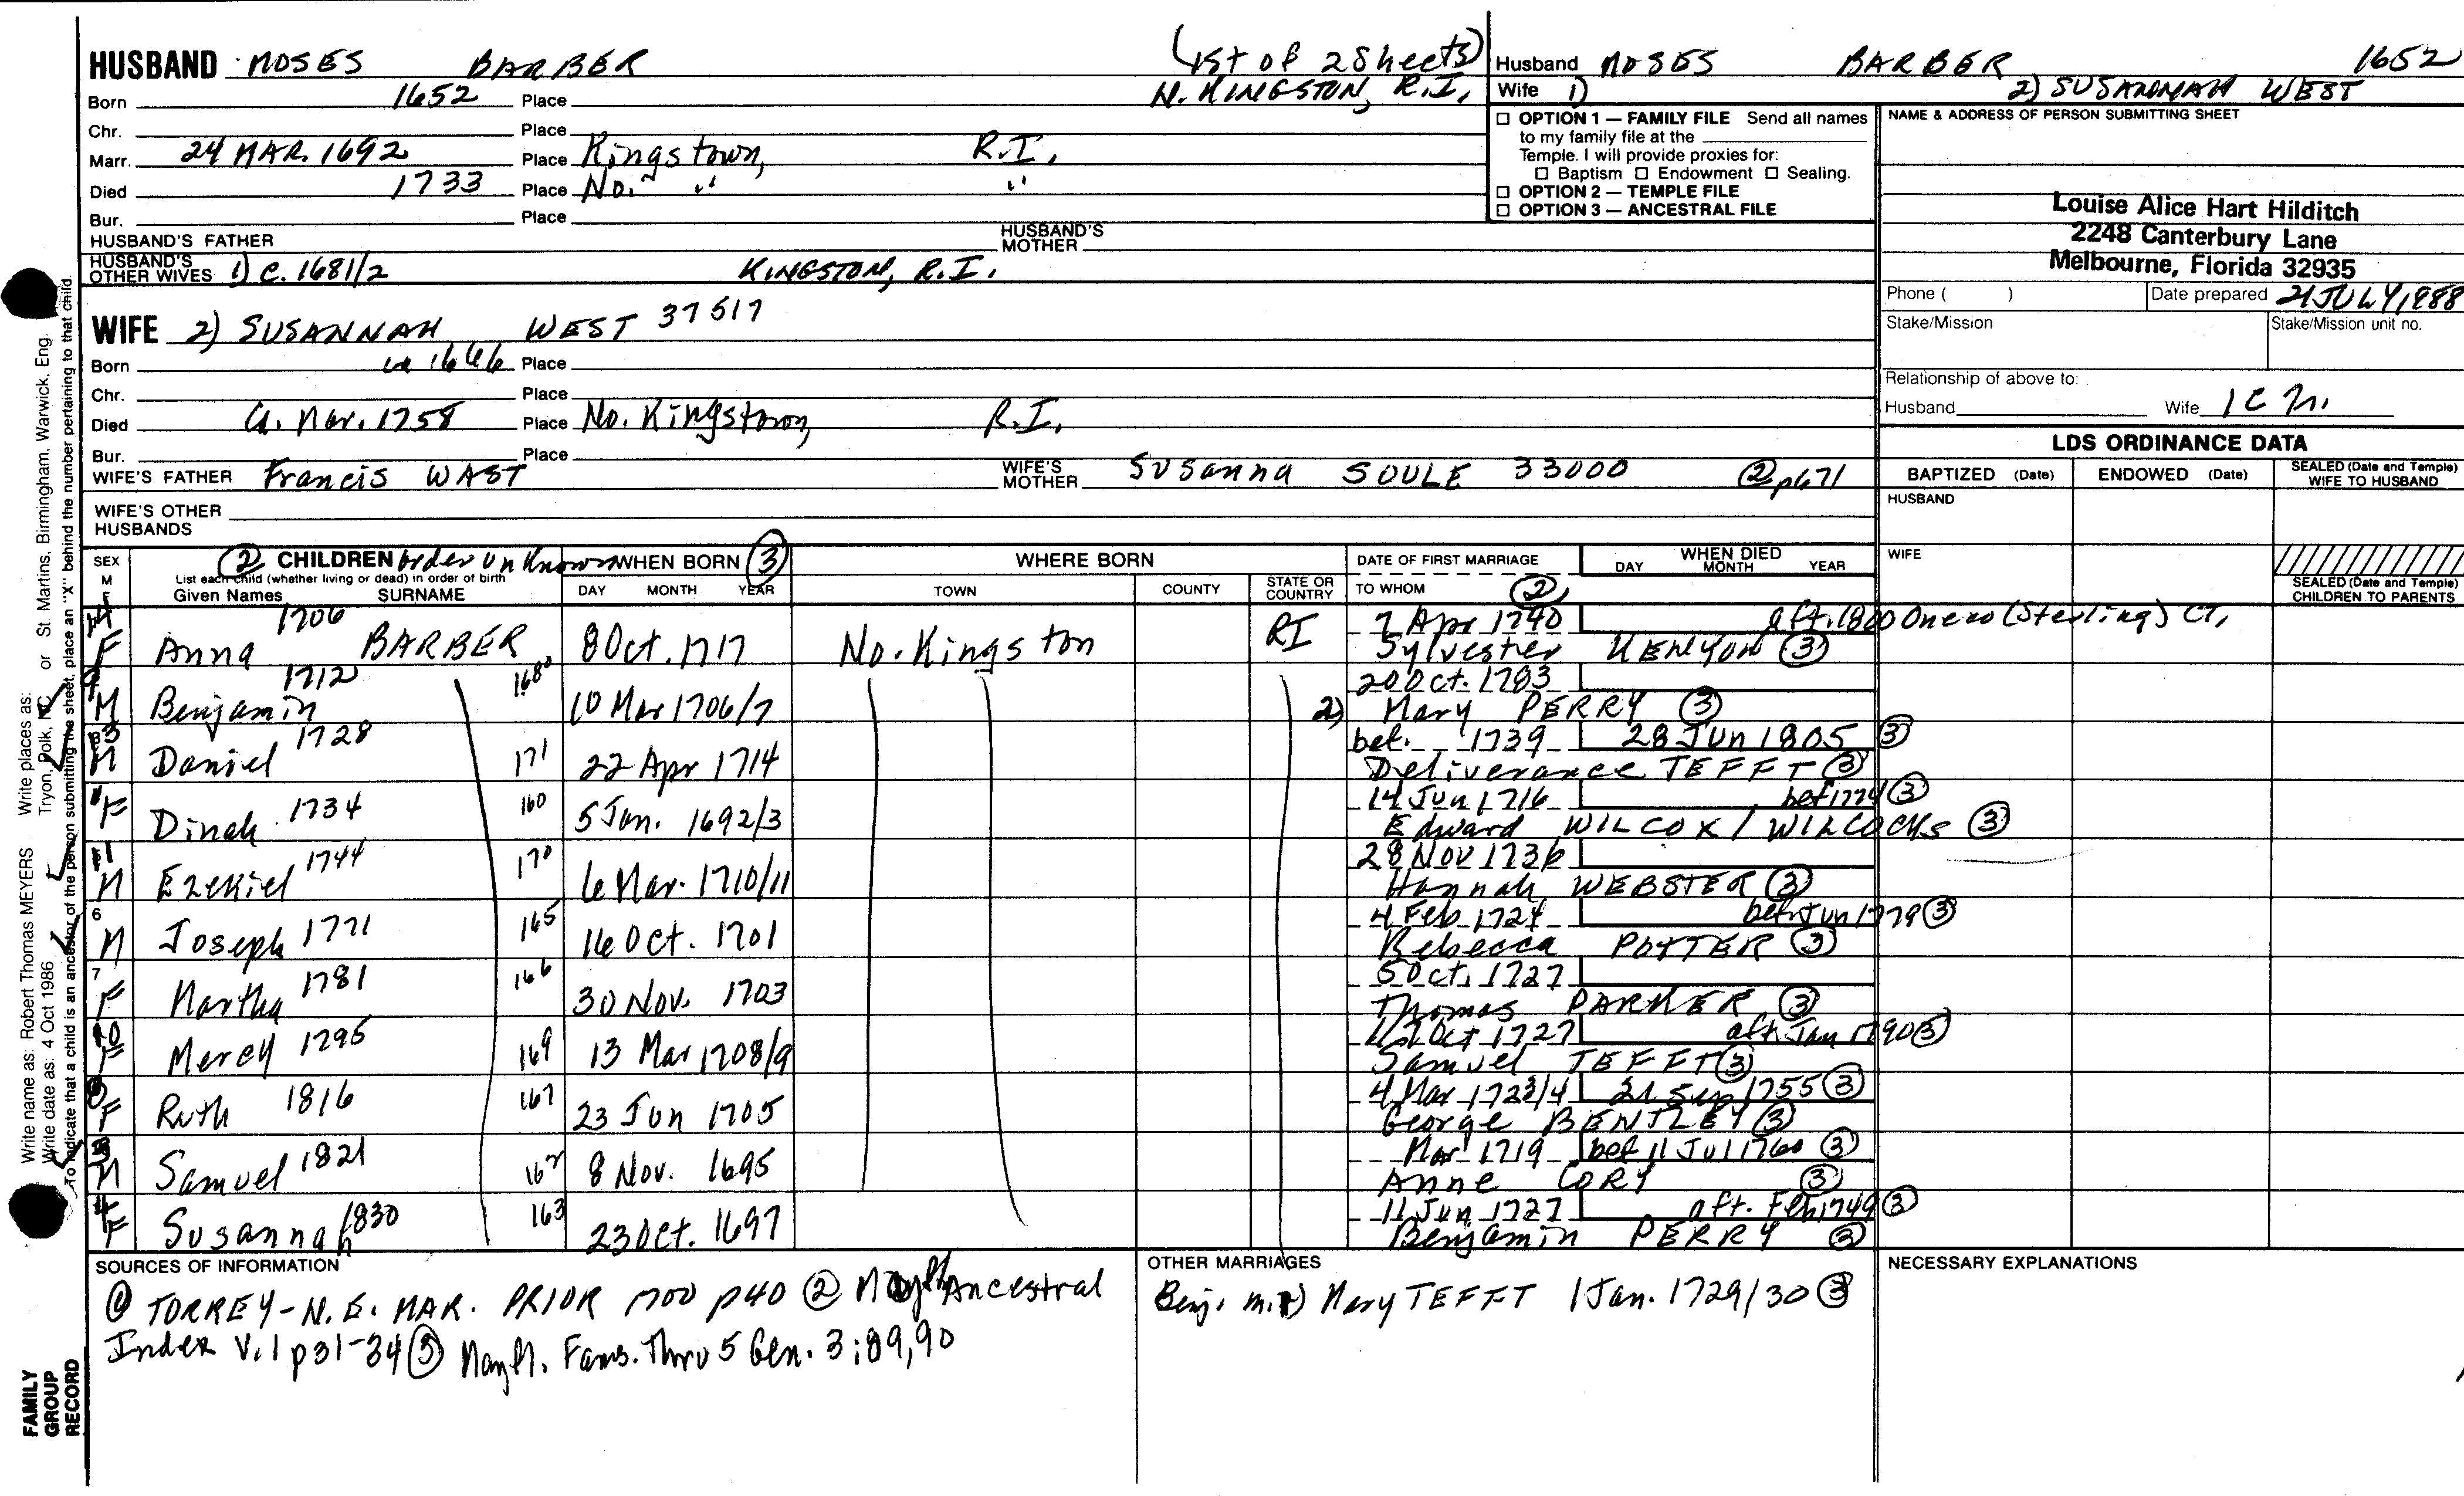 HUSBAND MOSES BARBER (1st of 2 Sheets)
Born 1652 Place N. KINGSTON, R.I.
Chr. Place
Marr. 24 MAR. 1692 Place Kingstown, R.I.
Died 1733 Place No. " "
Bur. Place
HUSBAND'S FATHER HUSBAND'S MOTHER
HUSBAND'S OTHER WIVES 1) c. 1681/2 KINGSTON, R.I.
WIFE 2) SUSANNAH WEST 37517
Born ca 1666 Place
Chr. Place
Died a. Mar. 1758 Place No. Kingstown, R.I.
Bur. Place
WIFE'S FATHER Francis WAST WIFE'S MOTHER Susanna SOULE 33000 ② p671
WIFE'S OTHER HUSBANDS
Husband MOSES BARBER 1652
Wife 1) 2) SUSANNAH WEST
☐ OPTION 1 — FAMILY FILE Send all names
to my family file at the
Temple. I will provide proxies for:
☐ Baptism ☐ Endowment ☐ Sealing.
☐ OPTION 2 — TEMPLE FILE
☐ OPTION 3 — ANCESTRAL FILE
NAME & ADDRESS OF PERSON SUBMITTING SHEET
Louise Alice Hart Hilditch
2248 Canterbury Lane
Melbourne, Florida 32935
Phone ( ) Date prepared 21 JULY, 1988
Stake/Mission Stake/Mission unit no.
Relationship of above to:
Husband Wife 1C
LDS ORDINANCE DATA
BAPTIZED (Date) ENDOWED (Date) SEALED (Date and Temple) WIFE TO HUSBAND
HUSBAND
WIFE
SEALED (Date and Temple) CHILDREN TO PARENTS
SEX M F
② CHILDREN order unknown
List each child (whether living or dead) in order of birth
Given Names SURNAME
WHEN BORN ③
DAY MONTH YEAR
WHERE BORN
TOWN COUNTY STATE OR COUNTRY
DATE OF FIRST MARRIAGE
TO WHOM ②
WHEN DIED
DAY MONTH YEAR
F Anna 1706 BARBER 8 Oct. 1717 No. Kingston RI 7 Apr 1740 aft. 1800 Oneco (Sterling) CT,
Sylvester KENYON ③
9 M Benjamin 1712 168 10 Mar 1706/7 20 Oct. 1783
2) Mary PERRY ③
M Daniel 1728 171 22 Apr 1714 bet. 1739 28 Jun 1805 ③
Deliverance TEFFT ③
1 F Dinah 1734 160 5 Jan. 1692/3 14 Jun 1716 bef 1774 ③
Edward WILCOX / WILCOCKS ③
11 M Ezekiel 1744 170 6 Mar. 1710/11 28 Nov 1736
Hannah WEBSTER ③
6 M Joseph 1771 165 16 Oct. 1701 4 Feb 1724 bef Jun 1779 ③
Rebecca POTTER ③
7 F Martha 1781 166 30 Nov. 1703 5 Oct. 1727
Thomas PARKER ③
10 F Mercy 1795 169 13 Mar 1708/9 Oct 1727 aft Jan 1790 ③
Samuel TEFFT ③
8 F Ruth 1816 167 23 Jun 1705 4 Mar 1723/4 21 Sep 1755 ③
George BENTLEY ③
3 M Samuel 1821 162 8 Nov. 1695 Mar 1719 bef 11 Jul 1760 ③
Anne CORY ③
4 F Susannah 1830 163 23 Oct. 1697 11 Jun 1727 aft. Feb 1749 ③
Benjamin PERRY ③
SOURCES OF INFORMATION
① TORREY - N.E. MAR. PRIOR 1700 p40 ② Mayfl Ancestral
Index V.1 p31-34 ③ Mayfl. Fams. Thru 5 Gen. 3:89,90
OTHER MARRIAGES
Benj. m. 1) Mary TEFFT 1 Jan. 1729/30 ③
NECESSARY EXPLANATIONS
Write name as: Robert Thomas MEYERS Write places as: Tryon, Polk, NC or St. Martins, Birmingham, Warwick, Eng.
Write date as: 4 Oct 1986
To indicate that a child is an ancestor of the person submitting the sheet, place an "X" behind the number pertaining to that child.
FAMILY
GROUP
RECORD